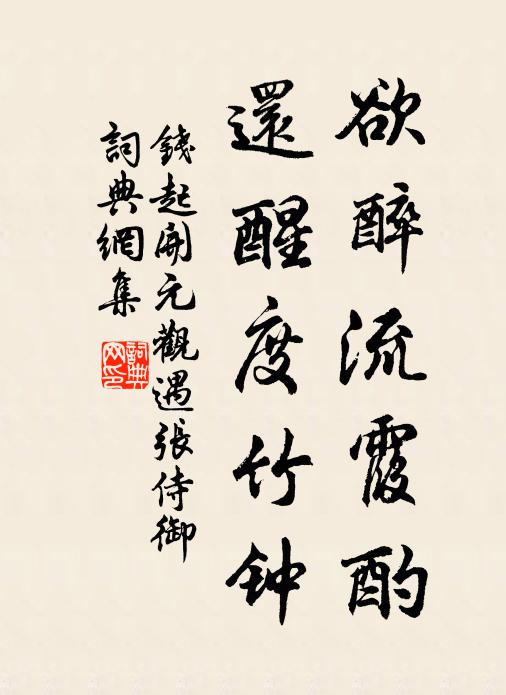 欲醉流霞酌
還醒度竹钟
錢起開元觀遇張侍御
詞典網集
詞典
网印